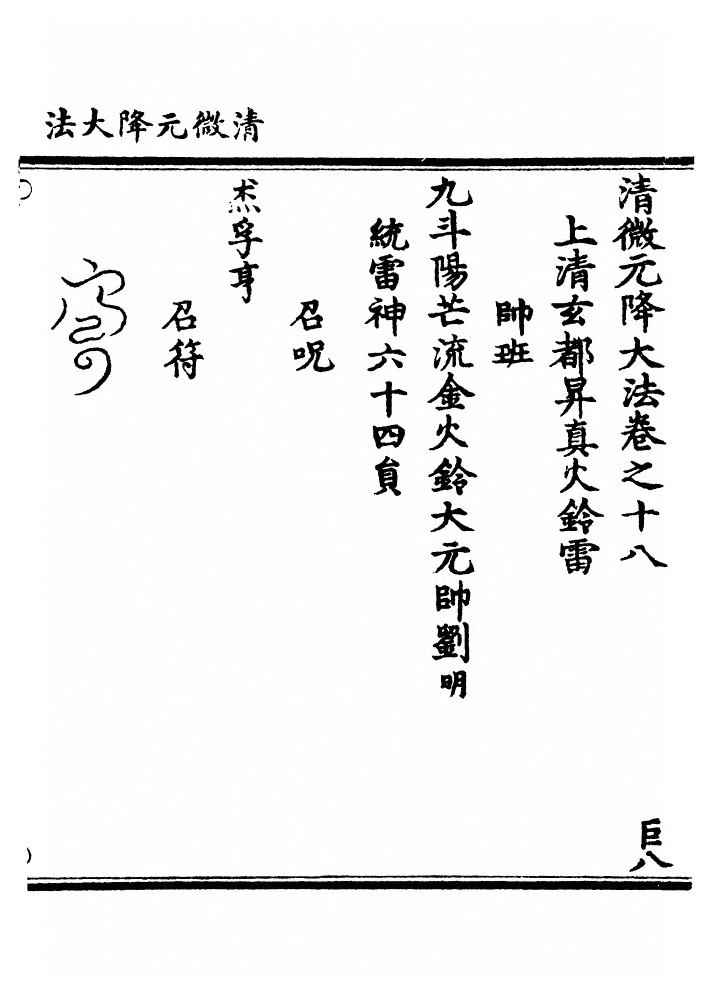 清微元降大法
清微元降大法卷之十八
巨八
上清玄都昇真火鈴雷
帥班
九斗陽芒流金火鈴大元帥劉明
統雷神六十四貟
召呪
𤇯孚亨
召符